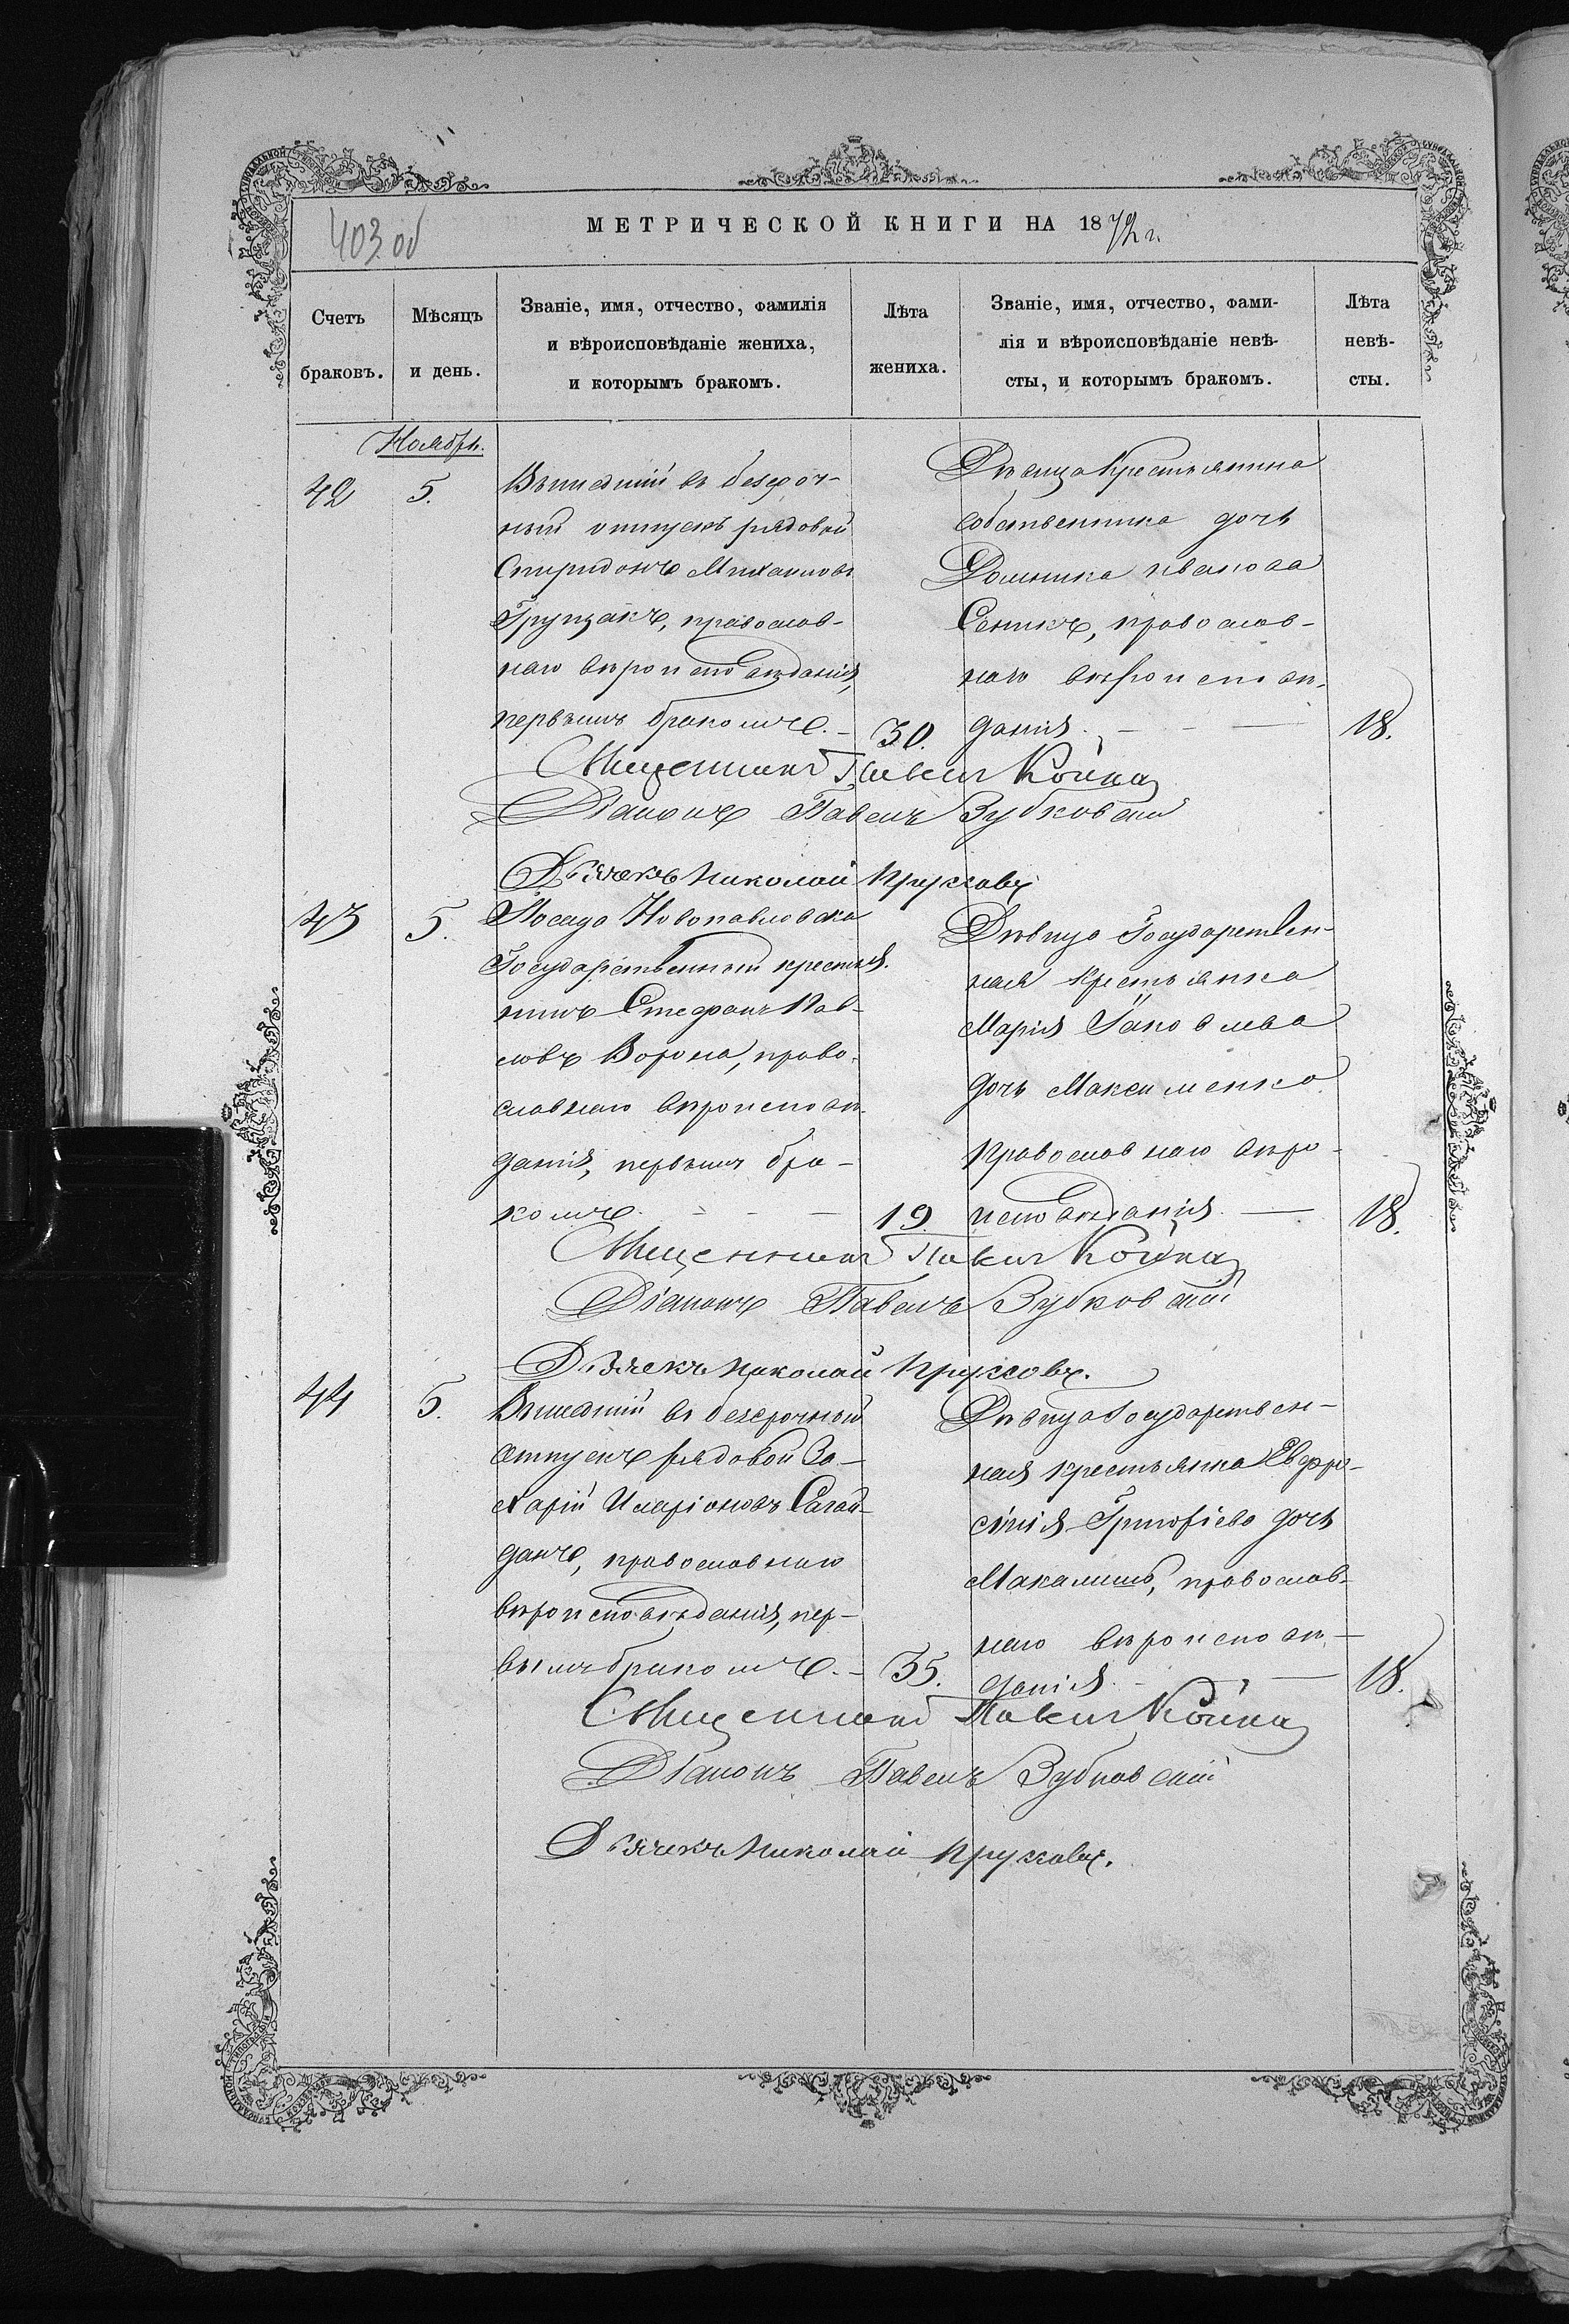 403 об
МЕТРИЧЕСКОЙ КНИГИ НА 1872 г.
Счетъ браковъ.
Мѣсяцъ и день.
Званіе, имя, отчество, фамилія
и вѣроисповѣданіе жениха,
и которымъ бракомъ.
Лѣта жениха.
Званіе, имя, отчество, фами-
лія и вѣроисповѣданіе невѣ-
сты, и которымъ бракомъ.
Лѣта невѣ-
сты.
Ноябрь.
42
5.
Вышедшій въ безсроч-
ный отпускъ рядовой
Спиридонъ Михаиловъ
Грунзакъ, православ-
наго вѣроисповѣданія,
первымъ бракомъ. —
30.
Дѣвица Крестьянина
собственника дочь
Домника Иванова
Сеникъ, православ-
наго вѣроисповѣ-
данія. — — —
18.
Священникъ Павелъ Койка
Діаконъ Павелъ Зубковскій
Дьячекъ Николай Крыжовъ
43
5.
Посада Новопавловска
Государственный крестья-
нинъ Стефанъ Пав-
ловъ Ворона, право-
славнаго вѣроисповѣ-
данія, первымъ бра-
комъ. — — —
19
Дѣвица Государствен-
ная крестьянка
Марія Іаковлева
дочь Максименко
православнаго вѣро-
исповѣданія. —
18.
Священникъ Павелъ Койка
Діаконъ Павелъ Зубковскій
Дьячекъ Николай Крыжовъ.
44
5.
Вышедшій въ безсрочный
отпускъ рядовой За-
харій Иларіоновъ Сагай-
дакъ, православнаго
вѣроисповѣданія, пер-
вымъ бракомъ. —
35.
Дѣвица Государствен-
ная крестьянка Евфро-
синія Григоріева дочь
православ-
наго вѣроисповѣ-
данія. — —
18.
Священникъ Павелъ Койка
Діаконъ Павелъ Зубковскій
Дьячекъ Николай Крыжовъ.